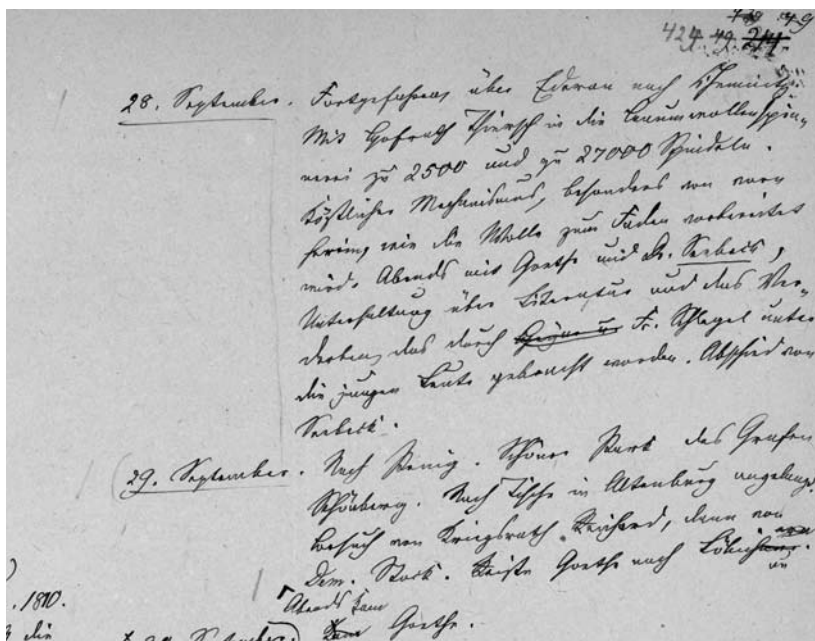 424. 49. 211.
28. September. Fortgefahren über Ederan nach Chemnitz.
Mit Hofrath Thiersch in die Baumwollenspin-
nerei zu 2500 und zu 27000 Spindeln.
Köstlicher Mechanismus, besonders von vorn
herein, wie die Wolle zum Faden vorbereitet
wird. Abends mit Goethe und Dr. Seebeck,
Unterhaltung über Literatur und das Ver-
derben, das durch Fr. Schlegel unter
die jungen Leute gebracht worden. Abschied von
Seebeck.
29. September. Nach Penig. Schöner Park des Grafen
Schönberg. Nach Tische in Altenburg angelangt.
Besuch von Kriegsrath Reichard, dann von
Dem. Stock. Reiste Goethe nach Löbichau.
Abends kam
. 1810. Goethe.
die 29. September)